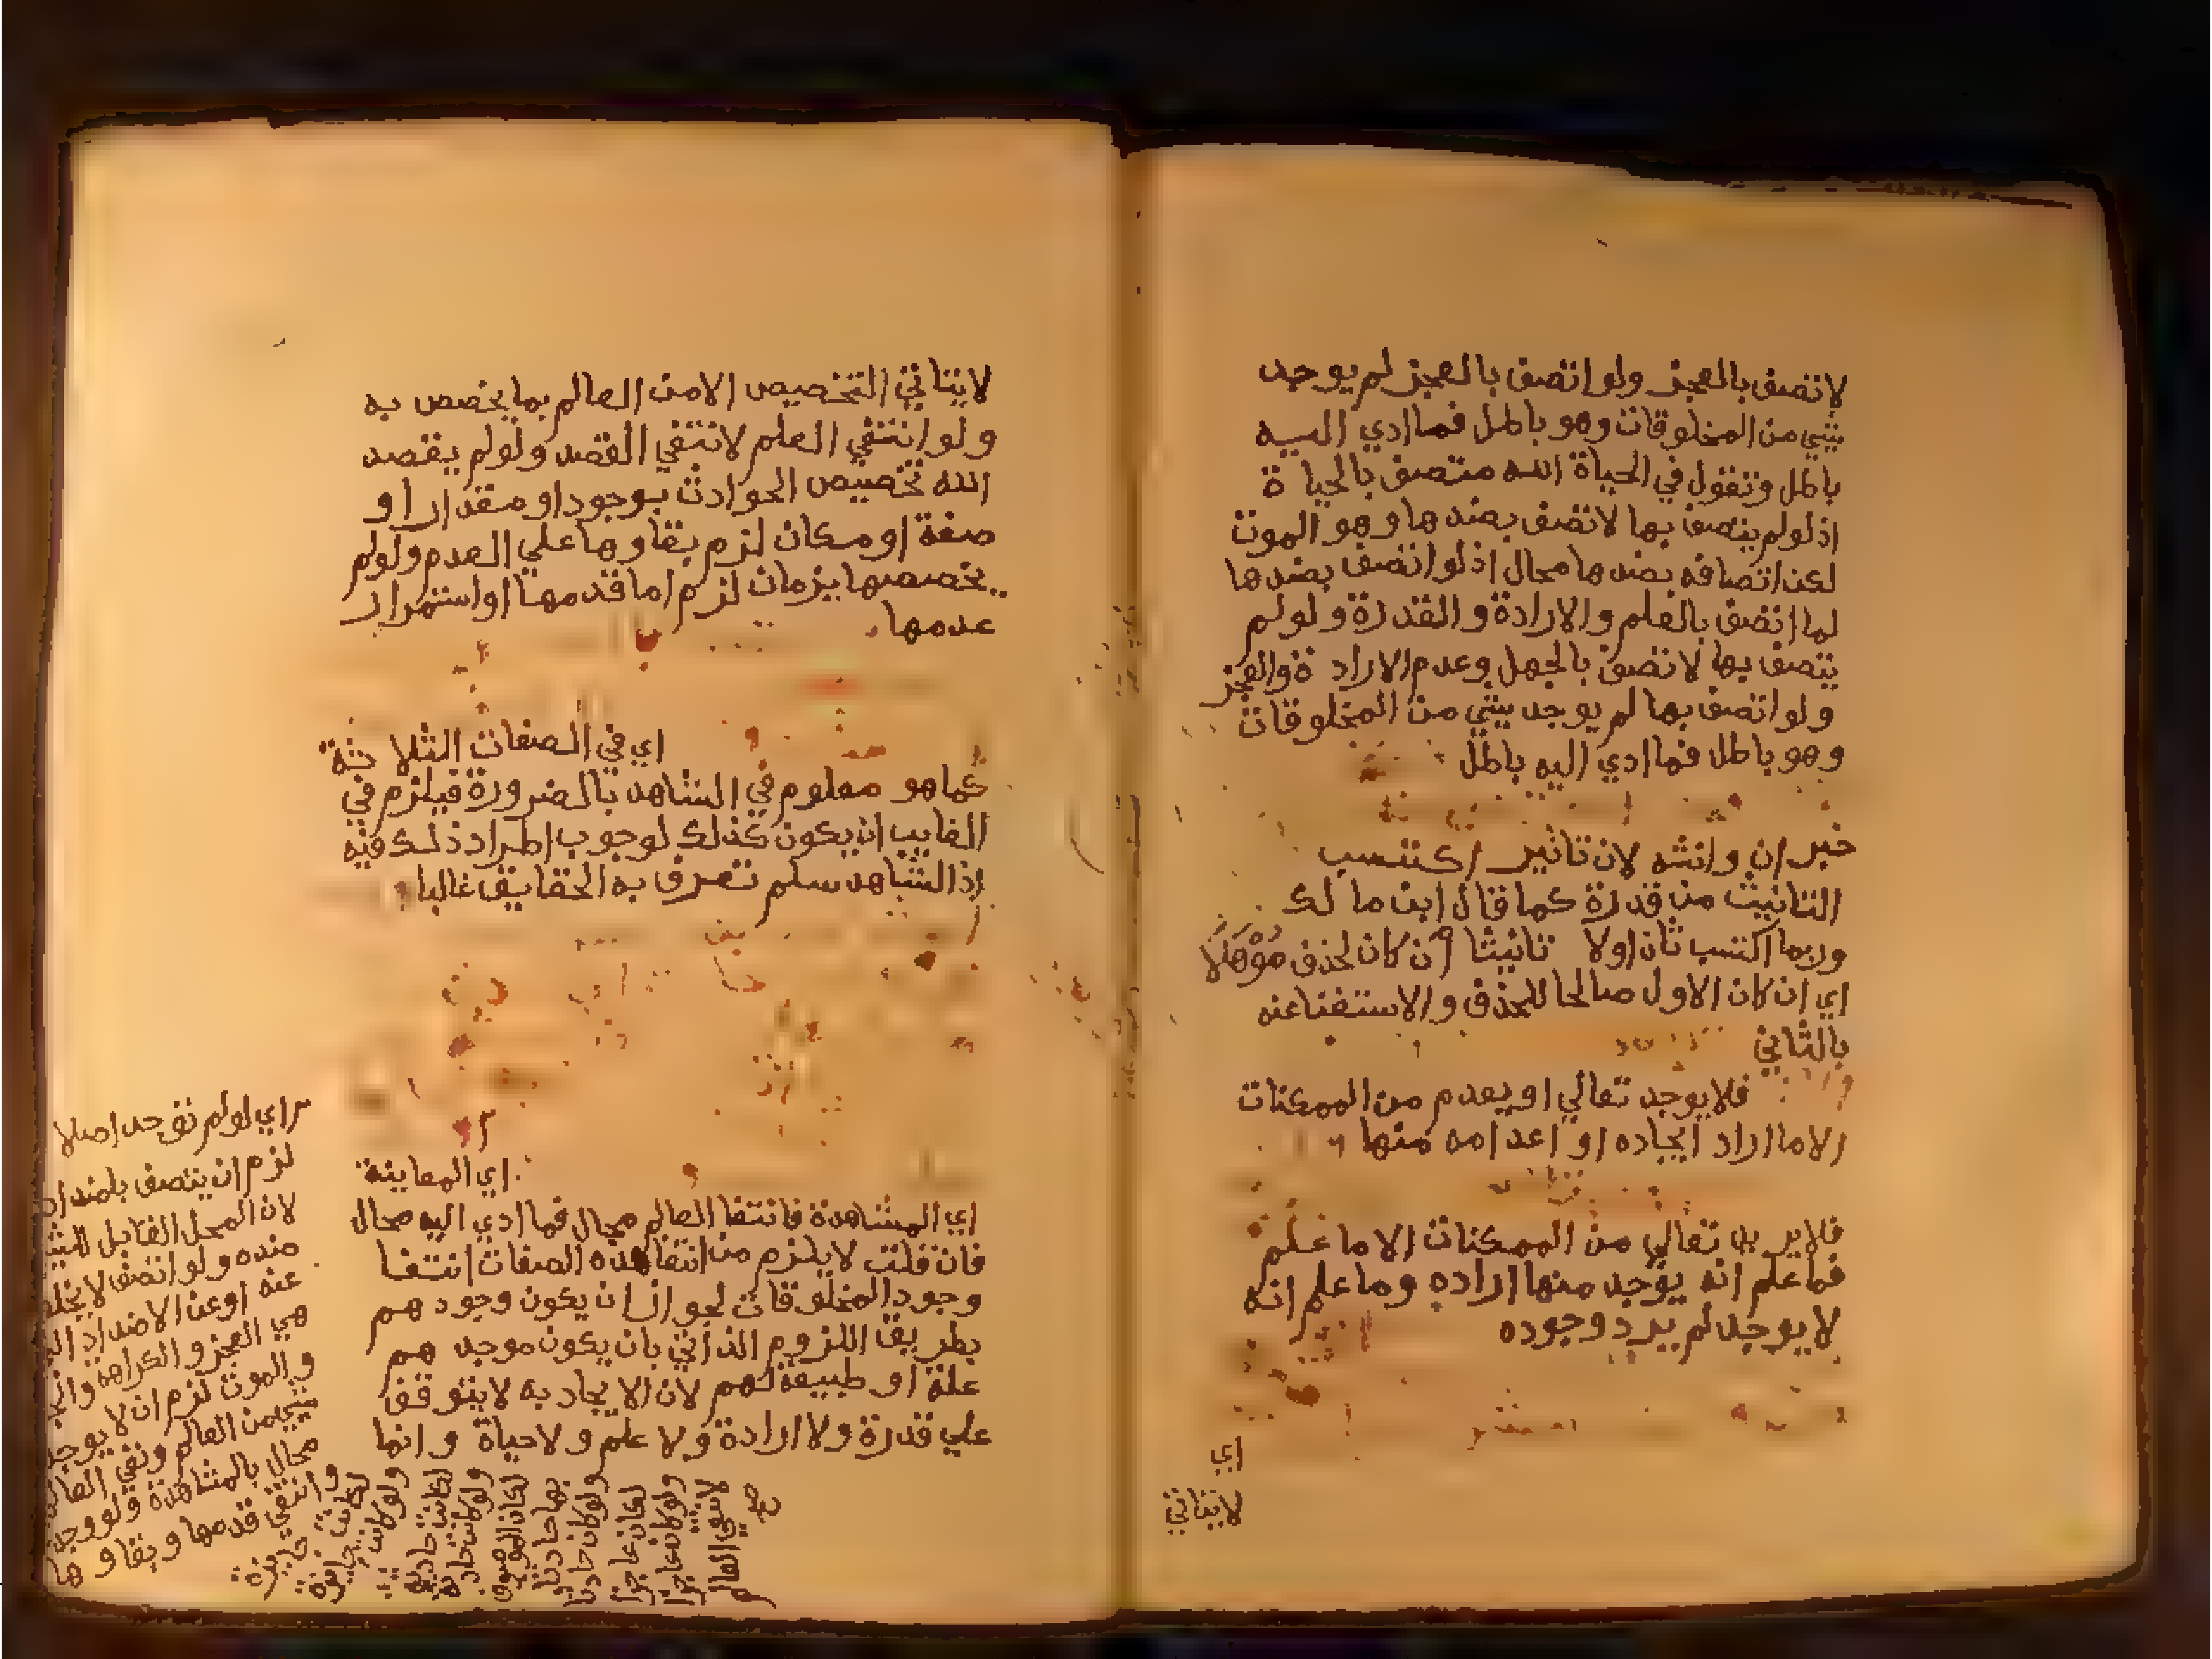 لاتصف بالعجز ولو اتصف بالعجز لم يوجد
شي من المخلوقات وهو باطل فما ادي اليه
باطل وتقول في الحياة الله متصف بالحيا ة
اذ لو لم يتصف بها لاتصف بضدها وهو الموت
لكن اتصافه بضدها محال اذ لو اتصف بضدها
لما اتصف بالعلم والارادة والقدرة ولو لم
يتصف بها لاتصف بالجهل وعدم الاراد ة والعجز
ولو اتصف بها لم يوجد شي من المخلوقات
وهو باطل فما ادي اليه باطل
خبر ان وانثه لان تاثير اكتسب
التانيث من قدرة كما قال ابن مالك
وربما اكتسب ثان اولا تانيثا أن كان لحذف مُوْهَلَا
اي ان كان الاول صالحا للحذف والاستغنا عنه
بالثاني
فلا يوجد تعالي او يعدم من الممكنات
الا ما اراد ايجاده او اعدامه منها
فلا يريد تعالي من الممكنات الا ما علم
فما علم انه يوجد منها اراده وما علم انه
لا يوجد لم يرد وجوده
اي
لايتاتي
لايتاتي التخصيص الا من العالم بما يخصص به
ولو انتفي العلم لانتفي القصد ولو لم يقصد
الله تخصيص الحوادث بوجود او مقدار او
صفة او مكان لزم بقاوها علي العدم ولو لم
يخصصها بزمان لزم اما قدمها او استمرار
عدمها
اي في الصفات الثلا ثة
كما هو معلوم في الشاهد بالضرورة فيلزم في
الغايب ان يكون كذلك لوجوب اطراد ذلك فيه
اذ الشاهد سلم تعرف به الحقايق غالبا
اي المعاينة
اي المشاهدة فانتفا العالم محال فما ادي اليه محال
فان قلت لا يلزم من انتفا هذه الصفات انتفا
وجود المخلوقات لجواز ان يكون وجودهم
بطريق اللزوم الذاتي بان يكون موجدهم
علة او طبيعة لهم لان الايجاد به لا يتوقف
علي قدرة ولا ارادة ولا علم ولا حياة وانما
اي لو لم توجد اصلا
لزم ان يتصف
لان المحل القابل
ضده ولو اتصف
عنه او عن الاضداد
هي العجز والكراهه
والموت لزم ان لا يوجد
شي من العالم ونفي
محال بالمشاهدة ولو وجد
وانتفي قدمها وبقاوها
لكانت جايزة
ولو كانت جايزة
لكانت حادثة
ولو كانت حادثة
لكان الموصوف
بها حادثا
ولو كان حادثا
لكان عاجزا
ولو كان عاجزا
لانتفي العالم
صح